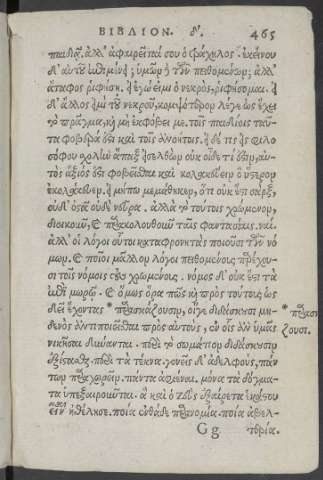 ΒΙΒΛΙΟΝ. δ'. 465
παιδία. ἀλλ' ἀφαιρεῖταί σου ὁ τράχηλος. ἐκείνου
δ' αὐτοῦ ἐπιμένει; ὑμῶν ἢ τῶν πειθομένων; ἀλλ'
ἄταφος ῥιφήσῃ. εἰ ἐγώ εἰμι ὁ νεκρὸς, ῥιφήσομαι. εἰ
δ' ἄλλος εἰμὶ τοῦ νεκροῦ, κομψότερον λέγε ὡς ἔχει
τὸ πρᾶγμα, καὶ μὴ ἐκφόβει με. τοῖς παιδίοις ταῦ-
τα φοβερά ἐστι καὶ τοῖς ἀνοήτοις. εἰ δέ τις εἰς φιλο-
σόφου σχολὴν ἅπαξ εἰσελθὼν οὐκ οἶδε τί ἐστιν, αὐ-
τὸς ἄξιός ἐστι φοβεῖσθαι καὶ κολακεύειν οὓς ὕστερον
ἐκολάκευεν. εἰ μήπω μεμάθηκεν, ὅτι οὐκ ἔστι σὰρξ,
οὐδ' ὀστᾶ οὐδὲ νεῦρα. ἀλλὰ τὸ τούτοις χρώμενον,
διοικοῦν, καὶ παρακολουθοῦν ταῖς φαντασίαις. ναί.
ἀλλ' οἱ λόγοι οὗτοι καταφρονητὰς ποιοῦσι τῶν νό-
μων. καὶ ποῖοι μᾶλλον λόγοι πειθομένους παρέχου-
σι τοῖς νόμοις τοὺς χρωμένους. νόμος δ' οὐκ ἔστι τὰ
ἐπὶ μωρῷ. καὶ ὅμως ὅρα πῶς καὶ πρὸς τούτους ὡς
δεῖ ἔχοντας * παρασκάζουσιν, οἵγε διδάσκουσι μη- * παρασκευά
δενὸς ἀντιποιεῖσθαι πρὸς αὐτοὺς, ἐν οἷς ἂν ὑμᾶς ζουσι.
νικῆσαι δύνανται. περὶ τὸ σωμάτιον διδάσκουσιν
ἐξίστασθαι. περὶ τὰ τέκνα. γονεῖς δ' ἀδελφοὺς, πάν
των παραχωρεῖν, πάντα ἀφιέναι. μόνα τὰ δόγμα-
τα ὑπεξαιροῦνται. ἃ καὶ ὁ Ζεὺς ἐξαίρετα ἑκάστου
εἶναι ἠθέλησε. ποία ἐνθάδε παρανομία. ποία ἀβελ-
Gg τερία.